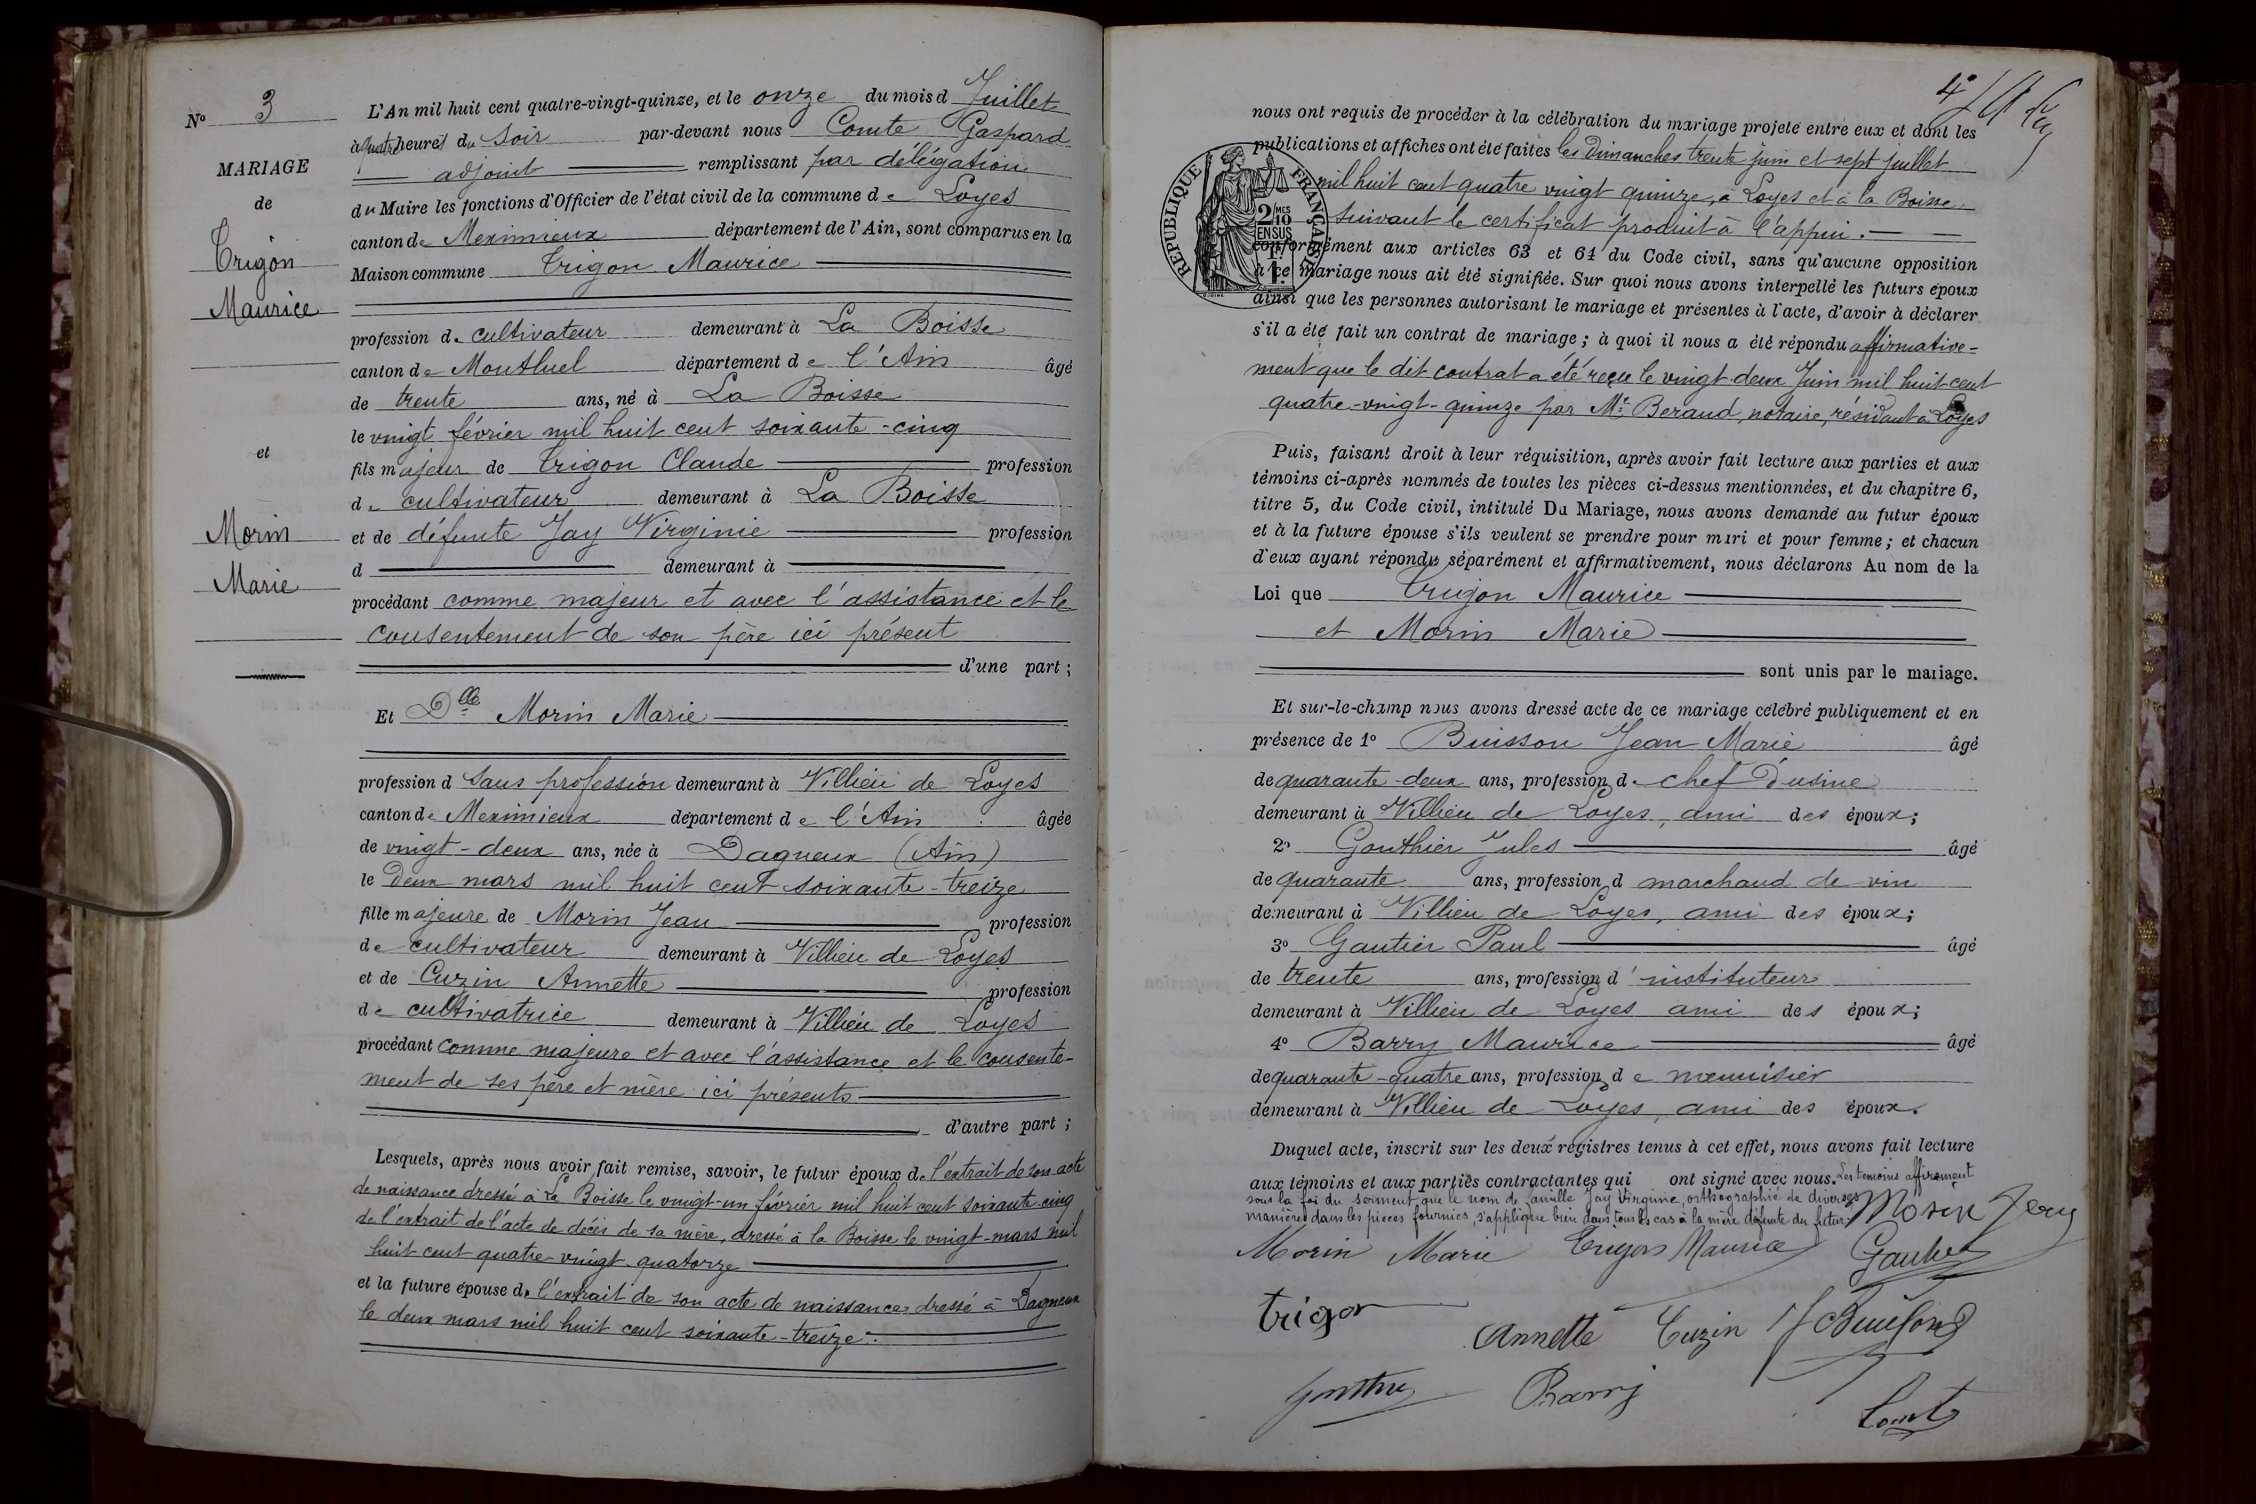 Nº 3
MARIAGE
de
Trigon
Maurice
et
Morin
Marie
L'An mil huit cent quatre-vingt-quinze, et le onze du mois d Juillet
à quatre heures du soir par-devant nous Comte Gaspard
adjoint remplissant par délégation
du Maire les fonctions d'Officier de l'état civil de la commune de Loyes
canton de Meximieux département de l'Ain, sont comparus en la
Maison commune Trigon Maurice
profession de cultivateur demeurant à La Boisse
canton de Montluel département de l'Ain âgé
de trente ans, né à La Boisse
le vingt février mil huit cent soixante-cinq
fils majeur de Trigon Claude profession
de cultivateur demeurant à La Boisse
et de défunte Jay Virginie profession
d demeurant à
procédant comme majeur et avec l'assistance et le
consentement de son père ici présent
d'une part ;
Et Dlle Morin Marie
profession d sans profession demeurant à Villieu de Loyes
canton de Meximieux département de l'Ain âgée
de vingt-deux ans, née à Dagneux (Ain)
le deux mars mil huit cent soixante-treize
fille majeure de Morin Jean profession
de cultivateur demeurant à Villieu de Loyes
et de Cuzin Annette profession
de cultivatrice demeurant à Villieu de Loyes
procédant comme majeure et avec l'assistance et le consente-
ment de ses père et mère ici présents
d'autre part ;
Lesquels, après nous avoir fait remise, savoir, le futur époux de l'extrait de son acte
de naissance dressé à La Boisse le vingt-un février mil huit cent soixante-cinq
de l'extrait de l'acte de décès de sa mère, dressé à la Boisse le vingt-mars mil
huit cent quatre-vingt quatorze
et la future épouse de l'extrait de son acte de naissance dressé à Dagneux
le deux mars mil huit cent soixante-treize.
4e
nous ont requis de procéder à la célébration du mariage projeté entre eux et dont les
publications et affiches ont été faites les Dimanches trente juin et sept juillet
mil huit cent quatre vingt quinze, à Loyes et à la Boisse
suivant le certificat produit à l'appui.
RÉPUBLIQUE FRANÇAISE
2/10 MES
EN SUS
1F.
conformément aux articles 63 et 64 du Code civil, sans qu'aucune opposition
à ce mariage nous ait été signifiée. Sur quoi nous avons interpellé les futurs époux
ainsi que les personnes autorisant le mariage et présentes à l'acte, d'avoir à déclarer
s'il a été fait un contrat de mariage ; à quoi il nous a été répondu affirmative-
ment que le dit contrat a été reçu le vingt deux Juin mil huit cent
quatre-vingt-quinze par Me Beraud, notaire, résidant à Loyes
Puis, faisant droit à leur réquisition, après avoir fait lecture aux parties et aux
témoins ci-après nommés de toutes les pièces ci-dessus mentionnées, et du chapitre 6,
titre 5, du Code civil, intitulé Du Mariage, nous avons demandé au futur époux
et à la future épouse s'ils veulent se prendre pour mari et pour femme ; et chacun
d'eux ayant répondu séparément et affirmativement, nous déclarons Au nom de la
Loi que Trigon Maurice
et Morin Marie
sont unis par le mariage.
Et sur-le-champ nous avons dressé acte de ce mariage célébré publiquement et en
présence de 1º Buisson Jean Marie âgé
de quarante-deux ans, profession de chef d'usine
demeurant à Villieu de Loyes, ami des époux ;
2º Gouthier Jules âgé
de quarante ans, profession d marchand de vin
demeurant à Villieu de Loyes, ami des époux ;
3º Gautier Paul âgé
de trente ans, profession d'instituteur
demeurant à Villieu de Loyes ami des époux ;
4º Barry Maurice âgé
de quarante-quatre ans, profession de menuisier
demeurant à Villieu de Loyes, ami des époux.
Duquel acte, inscrit sur les deux registres tenus à cet effet, nous avons fait lecture
aux témoins et aux parties contractantes qui ont signé avec nous. Les témoins affirment
sous la foi du serment que le nom de famille Jay Virginie, orthographié de diverses
manières dans les pièces fournies s'applique bien dans tous les cas à la mère défunte du futur.
Morin Jean
Morin Marie Trigon Maurice Gautier
trigon
Annette Cuzin J Buisson
Gouthier Barry
Comte